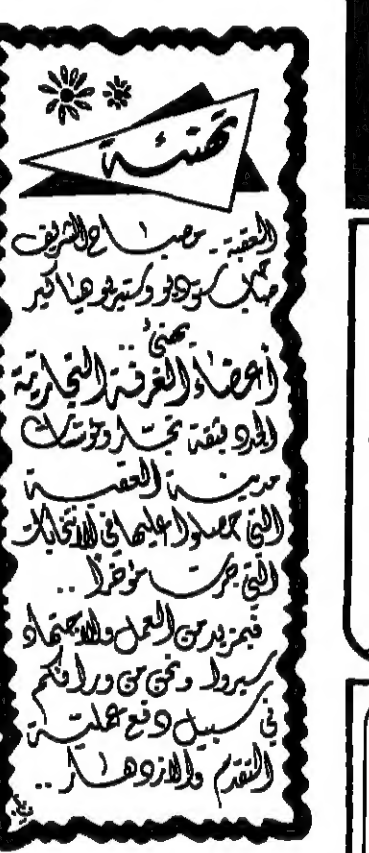 تهنئة
العقبة - مصباح الشريف
صاحب ستوديو وستيريو هباكير
يهنئ ..
أعضاء الغرفة التجارية
الجدد بثقة تجار ومؤسسات
مدينة العقبة
التي حصلوا عليها في الانتخابات
التي جرت مؤخراً ..
فبمزيد من العمل والاجتهاد
سيروا ونحن من ورائكم
في سبيل دفع عملية
التقدم والازدهار ..